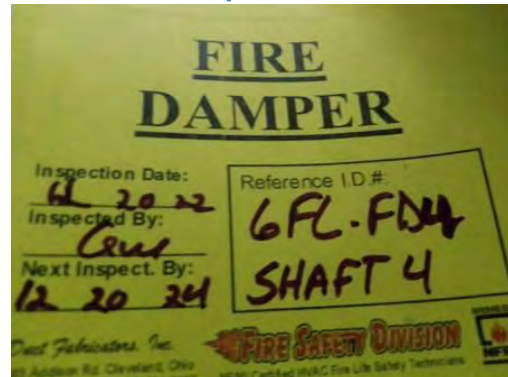 FIRE
DAMPER
Inspection Date:
12 20 22
Inspected By:
Next Inspect. By:
12 20 24
Reference I.D.#:
6FL-FD4
SHAFT 4
Duct Fabricators, Inc.
Addison Rd. Cleveland, Ohio
FIRE SAFETY DIVISION
Certified HVAC Fire Life Safety Technicians